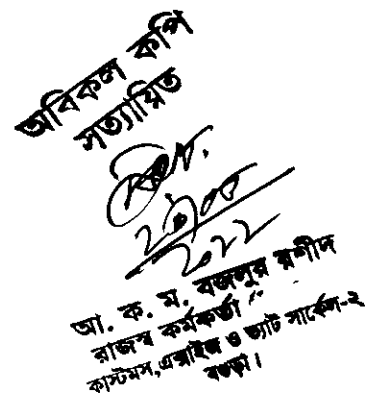 অবিকল কপি
সত্যায়িত
2022
আ. ক. ম. বজলুর রশীদ
রাজস্ব কর্মকর্তা
কাস্টমস,এক্সাইজ ও ভ্যাট সার্কেল-২
বগুড়া।